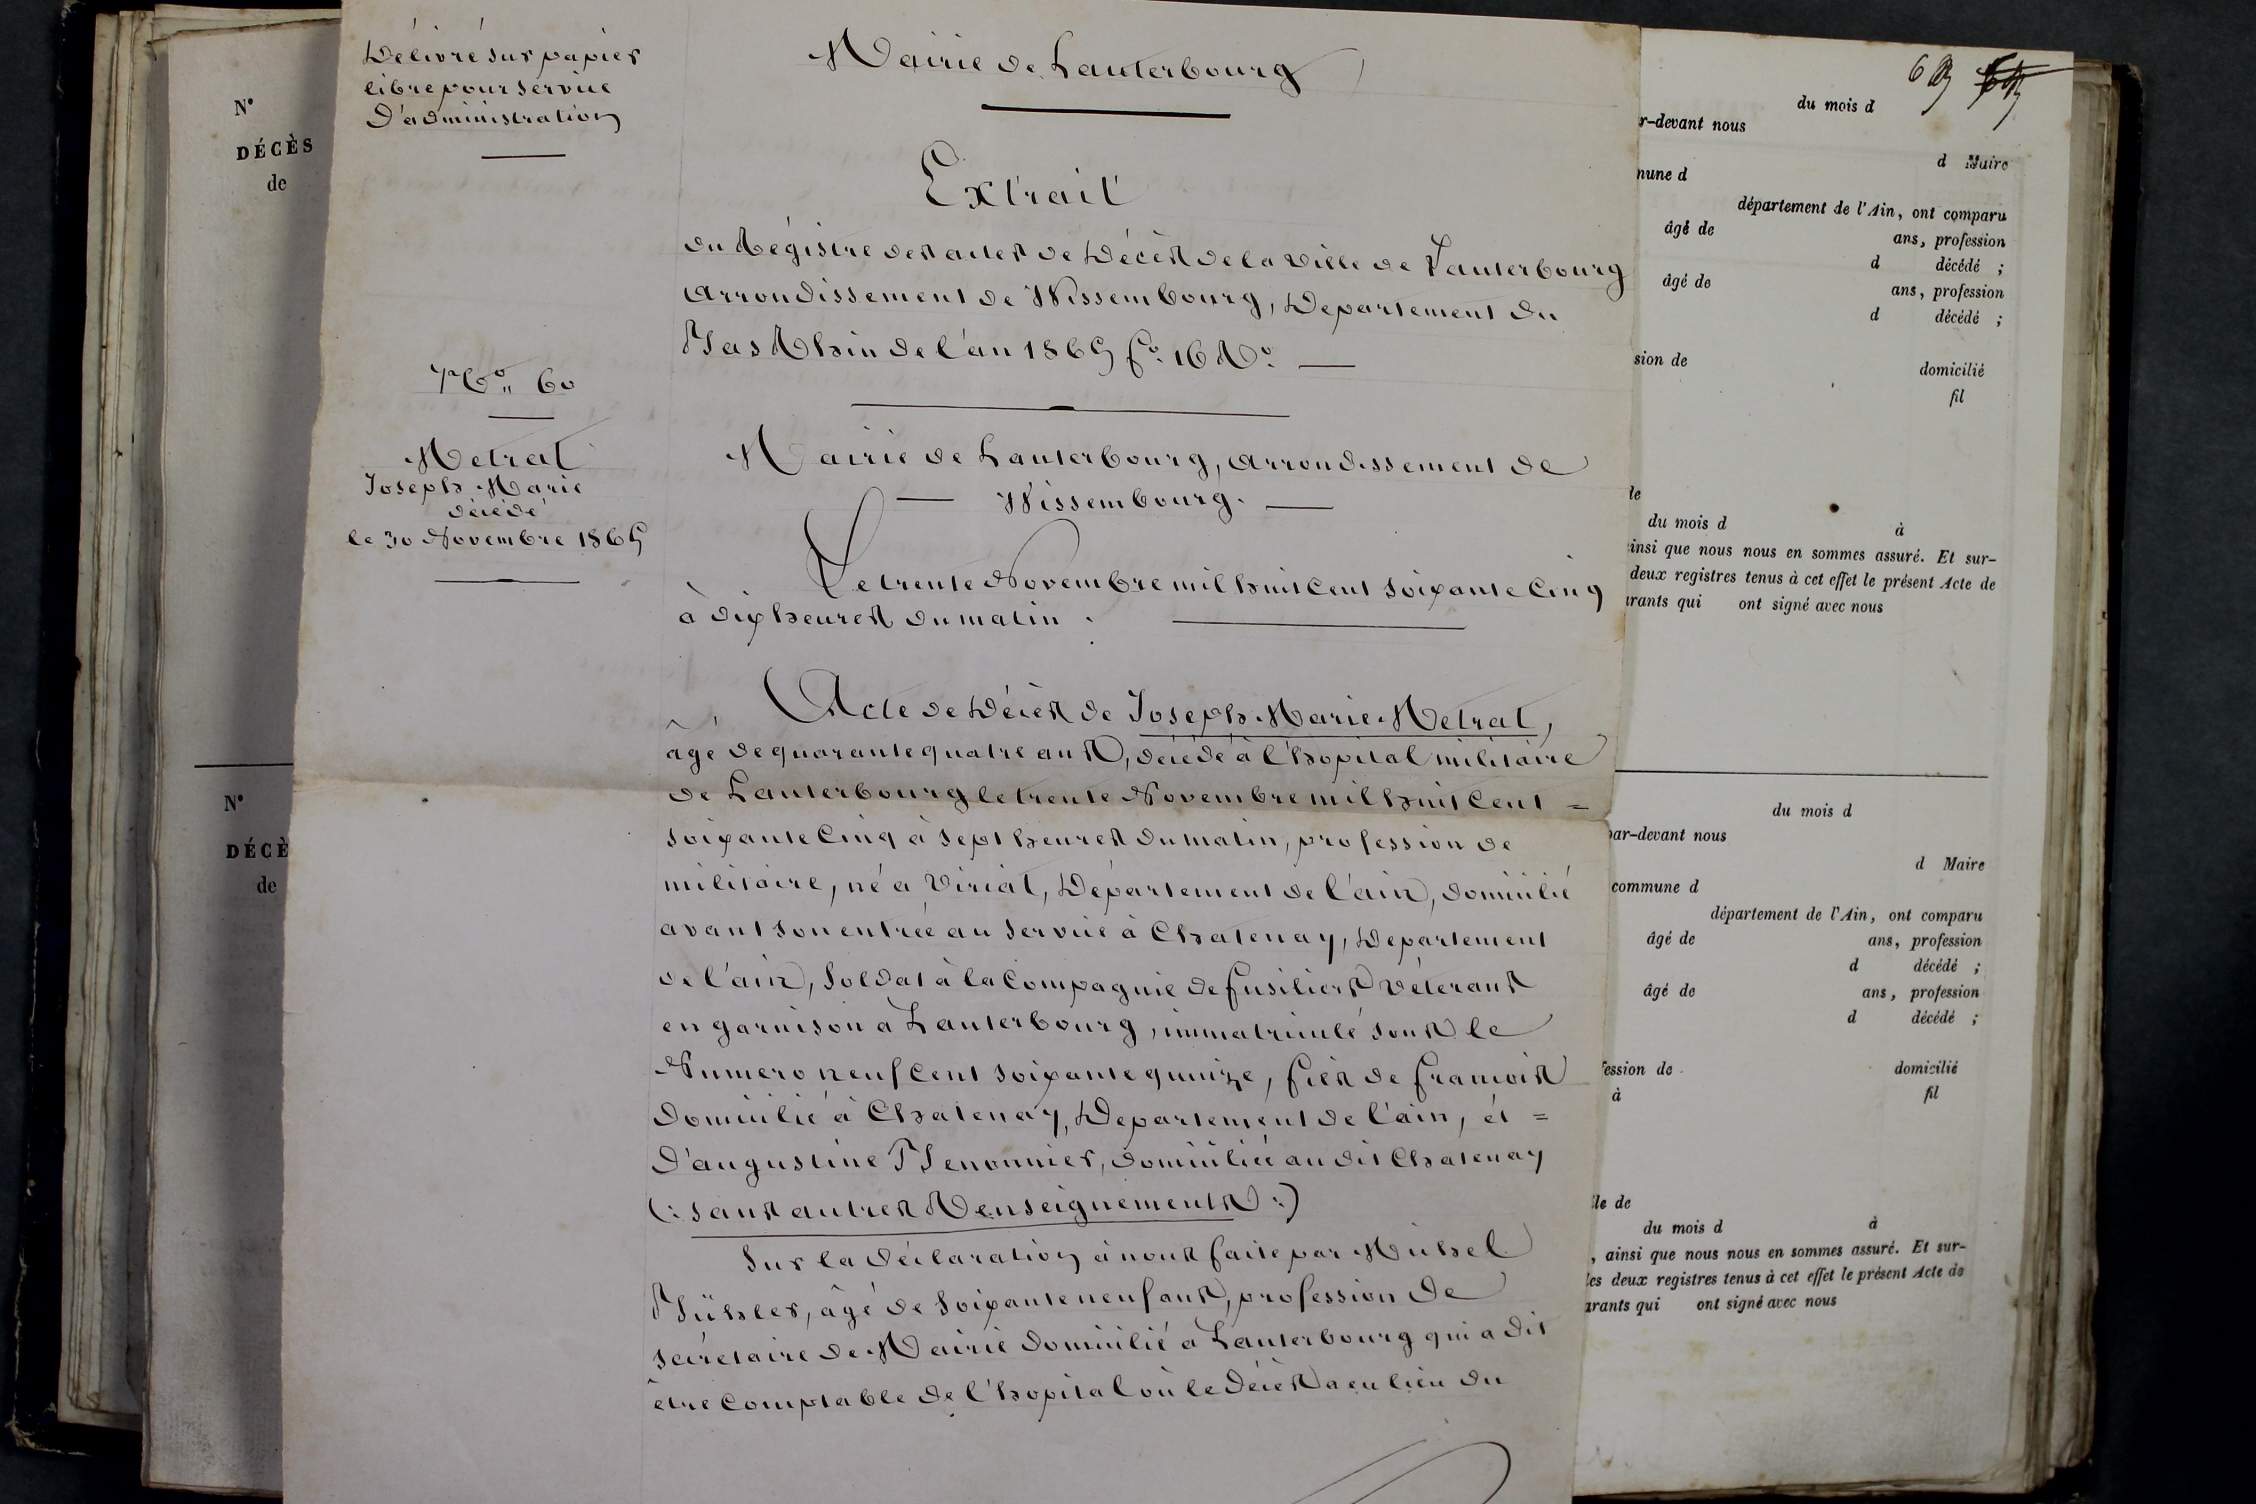 Délivré sur papier
libre pour service
d'administration
N° 60
Metral
Joseph Marie
décédé
le 30 Novembre 1865
Mairie de Lauterbourg
Extrait
du Régistre des actes de Décès de la ville de Lauterbourg
arrondissement de Wissembourg, Departement du
Bas Rhin de l'an 1865 f° 16 R°.
Mairie de Lauterbourg, arrondissement de
Wissembourg.
Le trente Novembre mil huit Cent soixante Cinq
à dix heures du matin.
Acte de Décès de Joseph Marie Metral,
âgé de quarante quatre ans, décédé à l'hopital militaire
de Lauterbourg le trente Novembre mil huit Cent =
soixante Cinq à sept heures du matin, profession de
militaire, né a Viriat, Département de l'ain, domicilié
avant son entrée au service à Chatenay, Departement
de l'ain, Soldat à la Compagnie de fusiliers vétérans
en garnison a Lauterbourg, immatriculé sous le
Numero neuf Cent soixante quinze, fils de francois
domicilié à Chatenay, Departement de l'ain, et =
d'augustine Benonnier, domiciliée au dit Chatenay
(: sans autres Renseignements :)
Sur la déclaration à nous faite par Michel
Bühler, âgé de soixante neuf ans, profession de
sécretaire de Mairie domicilié a Lauterbourg qui a dit
être Comptable de l'hopital où le Décès a eu lieu du
N°
DÉCÈS
de
N°
DÉCÈ
de
69
du mois d
r-devant nous
d Maire
mune d
département de l'Ain, ont comparu
âgé de ans, profession
d décédé ;
âgé de ans, profession
d décédé ;
sion de domicilié
fil
le
du mois d à
ainsi que nous nous en sommes assuré. Et sur-
deux registres tenus à cet effet le présent Acte de
arants qui ont signé avec nous
du mois d
par-devant nous
d Maire
commune d
département de l'Ain, ont comparu
âgé de ans, profession
d décédé ;
âgé de ans, profession
d décédé ;
fession de domicilié
à fil
lle de
du mois d à
, ainsi que nous nous en sommes assuré. Et sur-
les deux registres tenus à cet effet le présent Acte de
arants qui ont signé avec nous